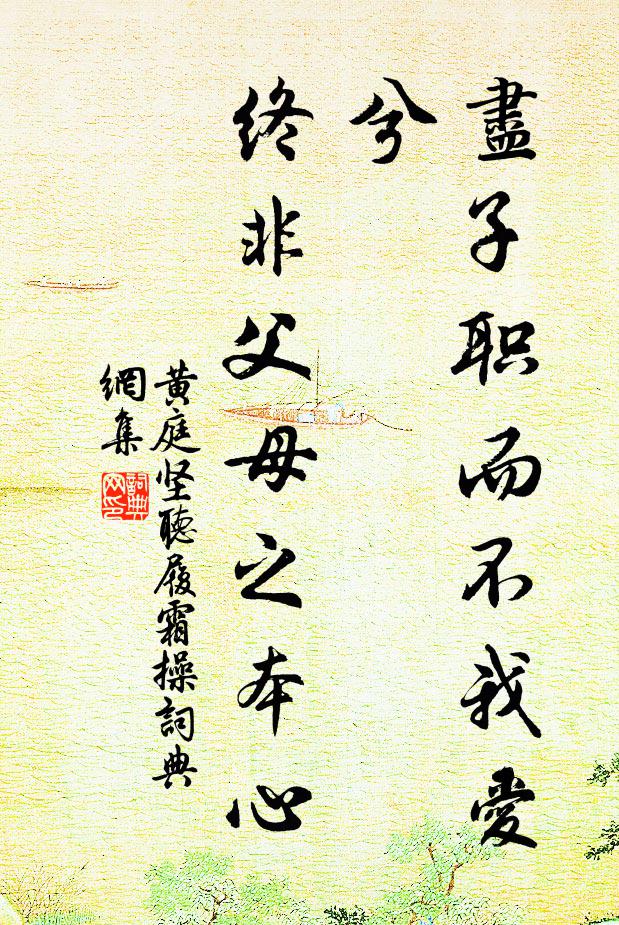 盡子职而不我愛
兮
终非父母之本心
黄庭坚聽履霜操詞典
網集
詞典
网印